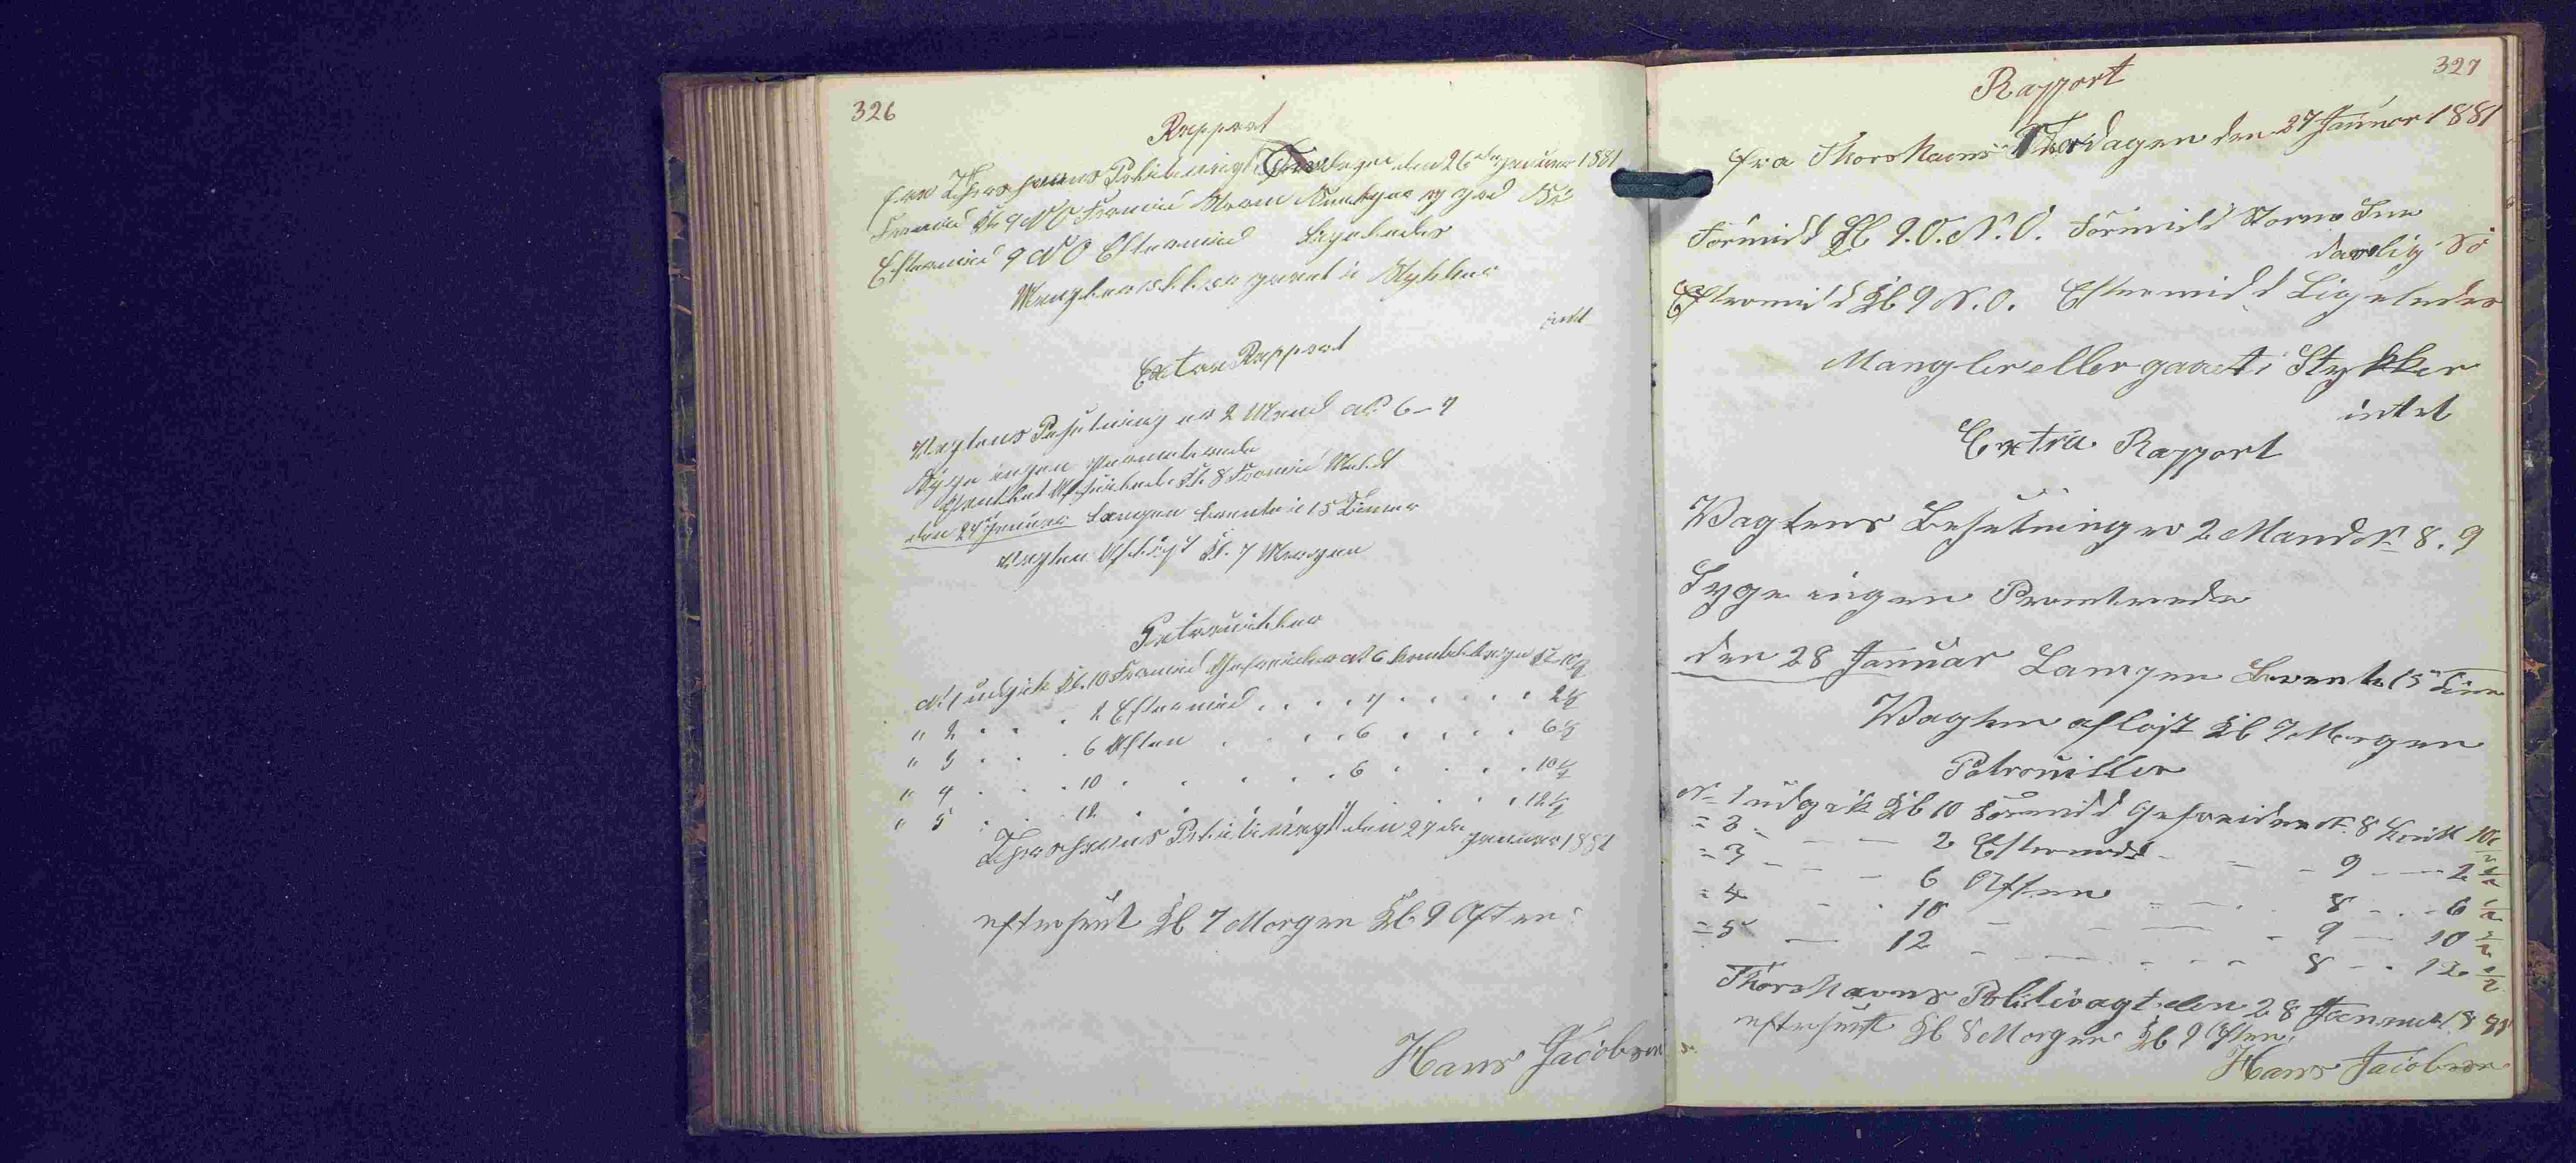 326
Rapport
fra Thorshavns Politivagt Onsdagen den 26de Januar 1881
Formid Kl. 9 N O Formid Storm Snetyne og god Sö
Eftermid 9 N O Eftermid Ligeledes
Mangler eller gaaet i Stykker
intet
Extra Rapport
Vagtens Besetning er 2 Mand No 6-7
Syge ingen Permiterede
Kl. 8 Formid
den 27de Januar Lampen brente i 15 Timer
Vagten Aflöst Kl. 7 Morgen
Patrouiller
No 1 udgik Kl. 10 Formid Gefreider No 6 Kl 10½
" 2 . . . 2 Eftermid . . . . 7 . . . . . 2½
" 3 . . . 6 Aften . . . . 6 . . . . 6½
" 4 . . . 10 . . . . . . 6 . . . . 10½
" 5 . . . 12 . . . . . . 7 . . . . 12½
Thorshavns Politivagt den 27de Januar 1881
efterseet Kl 7 Morgen Kl. 9 Aften
Hans Jacobsen
327
Rapport
fra Thorshavns Thorsdagen den 27 Januar 1881
Formidd Kl 9. O. N. O. Formidd Storm Sne
daarlig Sö
Eftermidd Kl 9 N. O. Eftermidd Ligeledes
Mangler eller gaaet i Stykker
intet
Extra Rapport
Vagtens Besetning er 2 Mand No 8. 9
Syge ingen Permiterede
den 28 Januar Lampen brente 15 Time
Vagten aflöst Kl 7 Morgen
Patrouiller
No 1 udgik Kl 10 Formidd Gefreider No 8 10½
= 2 - - - 2 Eftermidd - - - 9 - - 2½
= 3 - - - 6 Aften - - - 8 - - 6½
= 4 - - 10 - - - - 9 - 10½
= 5 - 12 - - - - - 8 - - 12½
Thorshavns Politivagt den 28 Januar 1881
efterseet Kl 8 Morgen Kl 9 Aften
Hans Jacobsen